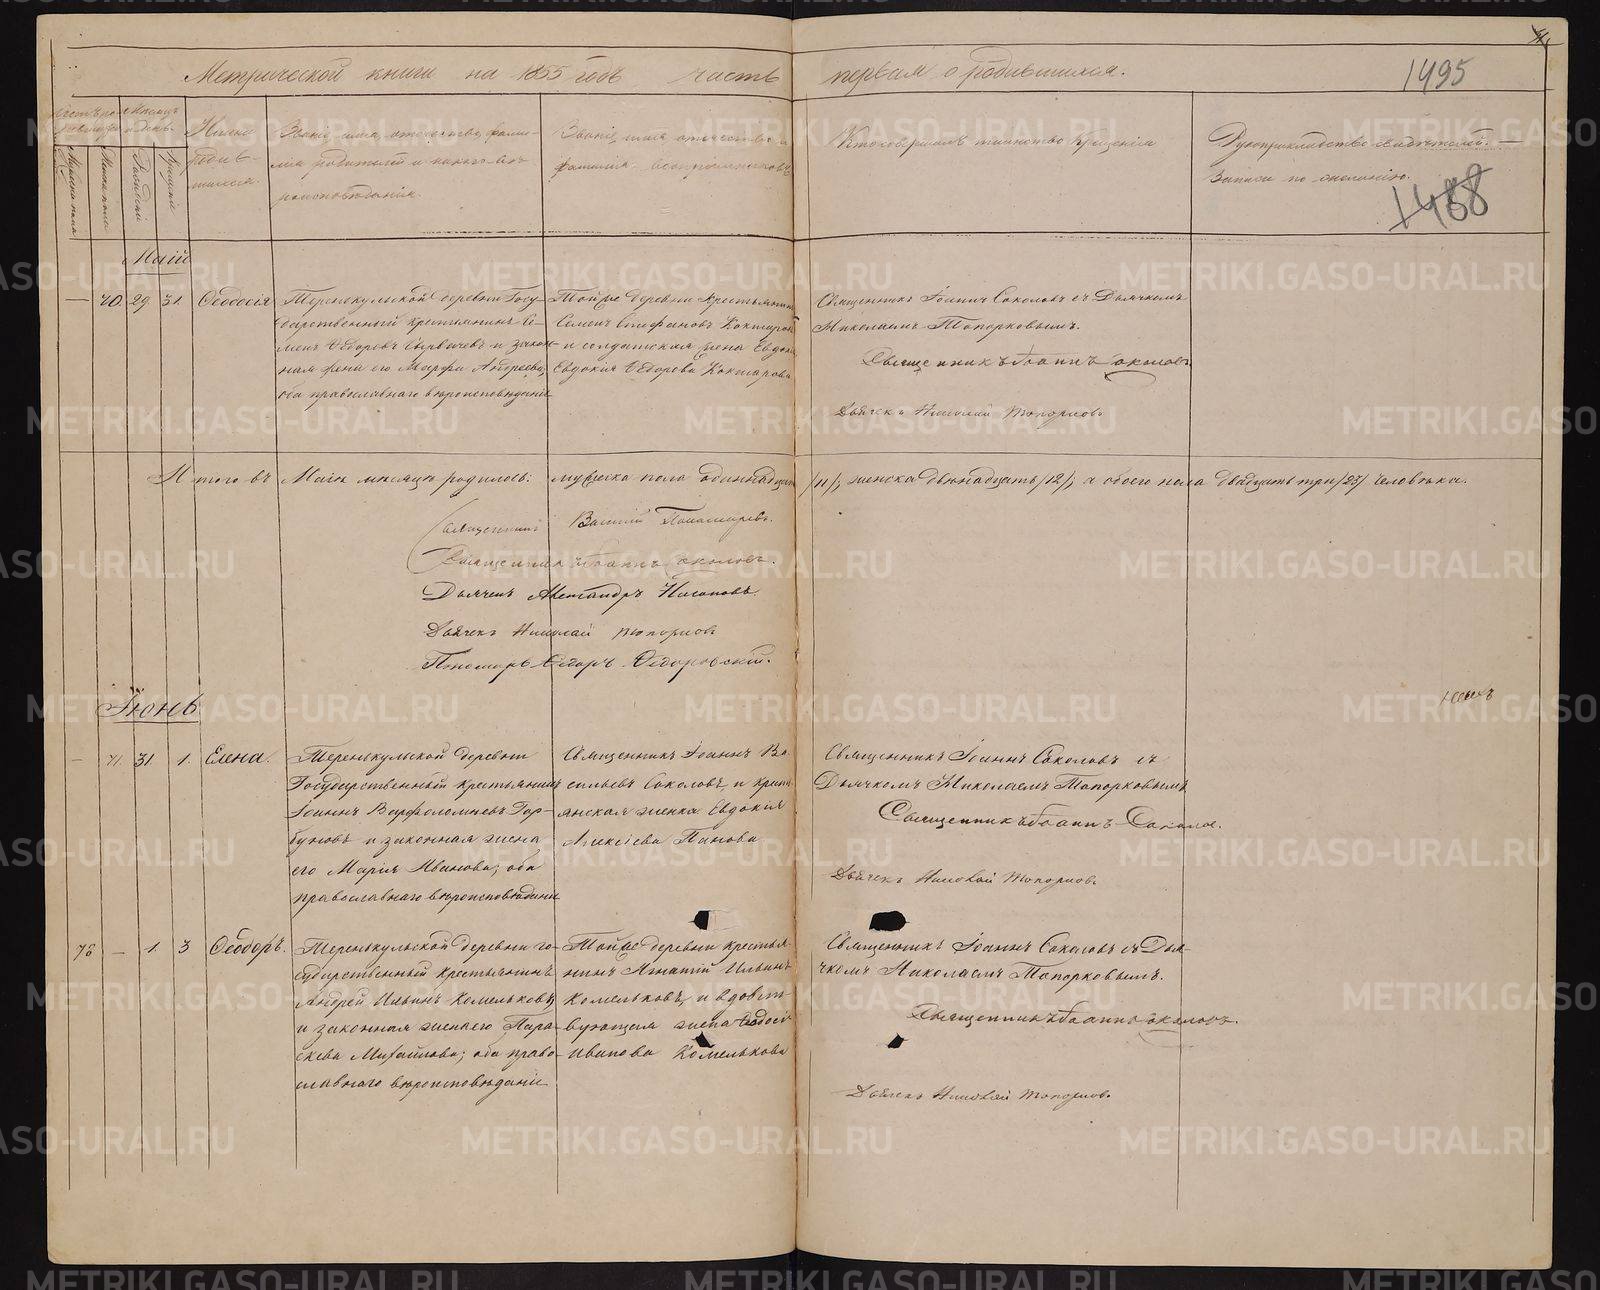 Метрической книги на 1855 годъ часть первая о родившихся.
1495
1488
Имена родив-
шихся.
Званіе, имя, отечество, фами-
лія родителей и какого вѣ-
роисповѣданія.
Званіе, имя отечество и
фамилія воспріемниковъ
Кто совершалъ таинство крещенія
Рукоприкладство свидѣтелей
записи по желанію.
Маій
— 70. 29. 31. Ѳеодосія
Теренкульской деревни Госу-
дарственный крестьянинъ Се-
менъ Ѳедоровъ Сырвачевъ и закон-
ная жена его Марфа Андреева,
оба православнаго вѣроисповѣданія
Тойже деревни крестьянинъ
Семенъ Стефановъ Кокшаровъ
и солдатская жена
Евдокія Ѳедорова Кокшарова
Священникъ Іоаннъ Соколовъ съ Дьячкомъ
Николаемъ Топорковымъ.
Священникъ Іоаннъ Соколовъ
Дьячекъ Николай Топорковъ
Итого въ Маіѣ мѣсяцѣ родилось: мужеска пола одиннадцать /11/, женска двѣнадцать /12/, а обоего пола двадцать три /23/ человѣка.
Священникъ Василій Пономаревъ.
Священникъ Іоаннъ Соколовъ.
Дьячекъ Александръ Насоновъ.
Дьячекъ Николай Топорковъ
Пономарь Ѳедоръ Ѳедоровскій.
Іюнь
— 71. 31. 1. Елена.
Теренкульской деревни
Государственный крестьянинъ
Іоаннъ Варфоломѣевъ Гор-
буновъ и законная жена
его Марія Иванова; оба
православнаго вѣроисповѣданія
Священникъ Іоаннъ Ва-
сильевъ Соколовъ, и крест-
янская женка Евдокія
Алексіева Панова
Священникъ Іоаннъ Соколовъ съ
Дьячкомъ Николаемъ Топорковымъ
Священникъ Іоаннъ Соколовъ.
Дьячекъ Николай Топорковъ
76 — 1. 3 Ѳеодоръ.
Теренкульской деревни го-
сударственный крестьянинъ
Андрей Ильинъ Комельковъ,
и законная жена его Пара-
скева Михаилова; оба право-
славнаго вѣроисповѣданія
Тойже деревни крестья-
нинъ Игнатій Ильинъ
Комельковъ, и вдовст-
вующая жена Ѳеодосія
Иванова Комелькова
Священникъ Іоаннъ Соколовъ съ Дья-
чкомъ Николаемъ Топорковымъ.
Священникъ Іоаннъ Соколовъ.
Дьячекъ Николай Топорковъ.
METRIKI.GASO-URAL.RU